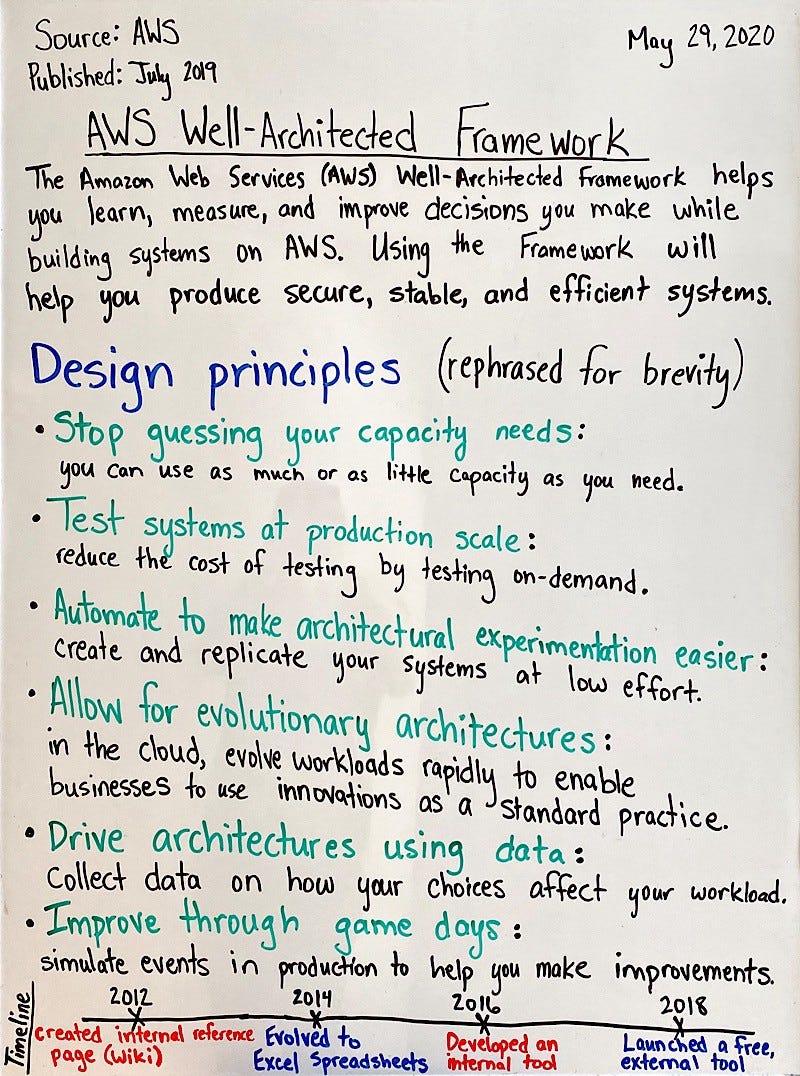 Source: AWS
May 29, 2020
Published: July 2019
AWS Well-Architected Framework
The Amazon Web Services (AWS) Well-Architected Framework helps
you learn, measure, and improve decisions you make while
building systems on AWS. Using the Framework will
help you produce secure, stable, and efficient systems.
Design principles (rephrased for brevity)
• Stop guessing your capacity needs:
you can use as much or as little capacity as you need.
• Test systems at production scale:
reduce the cost of testing by testing on-demand.
• Automate to make architectural experimentation easier:
create and replicate your systems at low effort.
• Allow for evolutionary architectures:
in the cloud, evolve workloads rapidly to enable
businesses to use innovations as a standard practice.
• Drive architectures using data:
Collect data on how your choices affect your workload.
• Improve through game days:
simulate events in production to help you make improvements.
Timeline
2012 2014 2016 2018
Created internal reference
page (wiki)
Evolved to
Excel Spreadsheets
Developed an
internal tool
Launched a free,
external tool